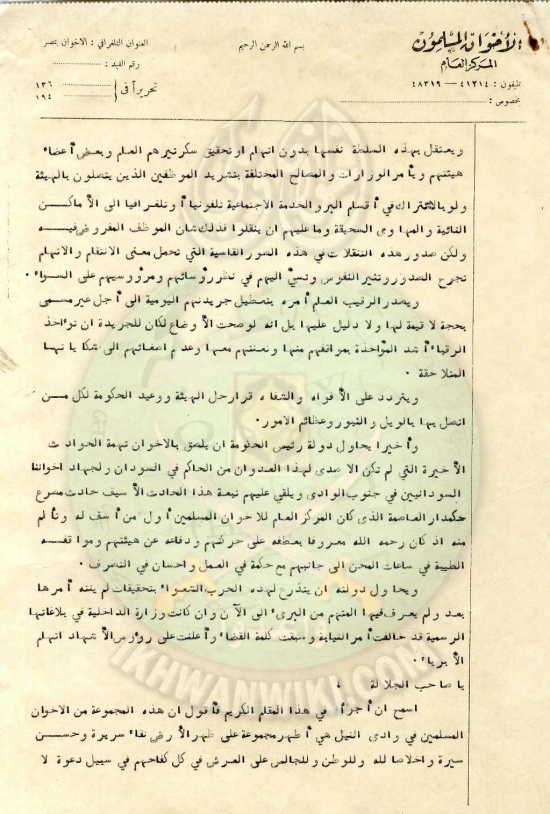 الإخوان المسلمون
المركز العام
تليفون : ٤١٢١٤ — ٤٨٣١٩
بخصوص :
بسم الله الرحمن الرحيم
العنوان التلغرافي : الاخوان بمصر
رقم القيد :
تحريرا في { ١٣٦
١٩٤
ويعتقل بهذه السلطة نفسها بدون اتهام او تحقيق سكرتيرهم العام وبعض أعضاء
هيئتهم ويأمر الوزارات والمصالح المختلفة بتشريد الموظفين الذين يتصلون بالهيئة
ولو بالاشتراك في أقسام البر والخدمة الاجتماعية تلفونيا أو تلغرافيا الى الأماكن
النائية والمهاوى السحيقة وما عليهم ان ينقلوا فذلك شان الموظف المفروض فيه
ولكن صدور هذه التنقلات في هذه الصور القاسية التي تحمل معنى الانتقام والاتهام
تجرح الصدور وتثير النفوس وتسيء اليهم في نظر رؤسائهم ومرؤوسيهم على السواء .
ويصدر الرقيب العام أمره بتعطيل جريدتهم اليومية الى أجل غير مسمى
بحجة لا قيمة لها ولا دليل عليها بل انه لو صحت الأوضاع لكان للجريدة ان تؤاخذ
الرقباء أشد المؤاخذة بمواقفهم منها وتعنتهم معها وعدم اصغائهم الى شكاياتها
المتلاحقة .
ويتردد على الأفواه والشفاه قرار حل الهيئة ووعيد الحكومة لكل من
اتصل بها بالويل والثبور وعظائم الامور .
وأخيرا يحاول دولة رئيس الحكومة ان يلصق بالاخوان تهمة الحوادث
الأخيرة التي لم تكن الا صدى لهذا العدوان من الحاكم في السودان ولجهاد اخواننا
السودانيين في جنوب الوادى ويلقي عليهم تبعة هذا الحادث الأسيف حادث مصرع
حكمدار العاصمة الذى كان المركز العام للاخوان المسلمين أول من أسف له وتألم
منه اذ كان رحمه الله معروفا بعطفه على حركتهم ودفاعه عن هيئتهم ومواقفه
الطيبة في ساعات المحن الى جانبهم مع حكمة في العمل واحسان في التصرف .
ويحاول دولته ان يتذرع لهذه الحرب الشعواء بتحقيقات لم ينته أمرها
بعد ولم يعرف فيها المتهم من البرىء الى الآن وان كانت وزارة الداخلية في بلاغاتها
الرسمية قد خالفت أمر النيابة وسبقت كلمة القضاء وأعلنت على رؤوس الأشهاد اتهام
الأبرياء .
يا صاحب الجلالة
اسمح ان أجرأ في هذا المقام الكريم فأقول ان هذه المجموعة من الاخوان
المسلمين في وادى النيل هي أطهر مجموعة على ظهر الأرض نقاء سريرة وحسن
سيرة واخلاصا لله وللوطن وللجالس على العرش في كل كفاحهم في سبيل دعوة لا
IKHWANWIKI.COM